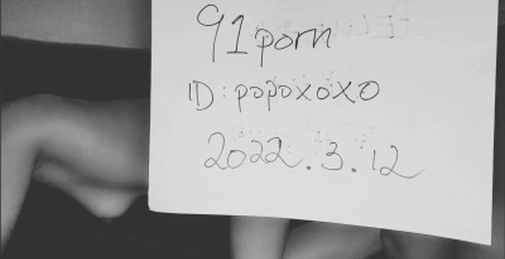 91porn
ID:popoxoxo
2022.3.12